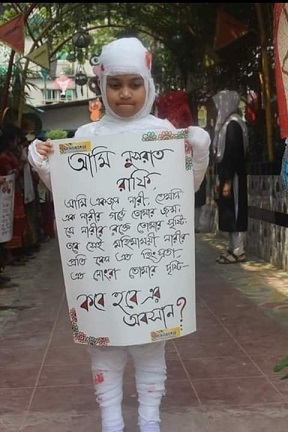 আমি নুসরাত
রাফি,
আমি একজন নারী, তেমনি
এক নারীর গর্ভে তোমার জন্ম,
যে নারীর রক্তে তোমার সৃষ্টি-
তবে সেই মহিমাময়ী নারীর
প্রতি কেন এত হিংস্রতা-
এত নোংরা তোমার দৃষ্টি-
কবে হবে এর
অবসান?